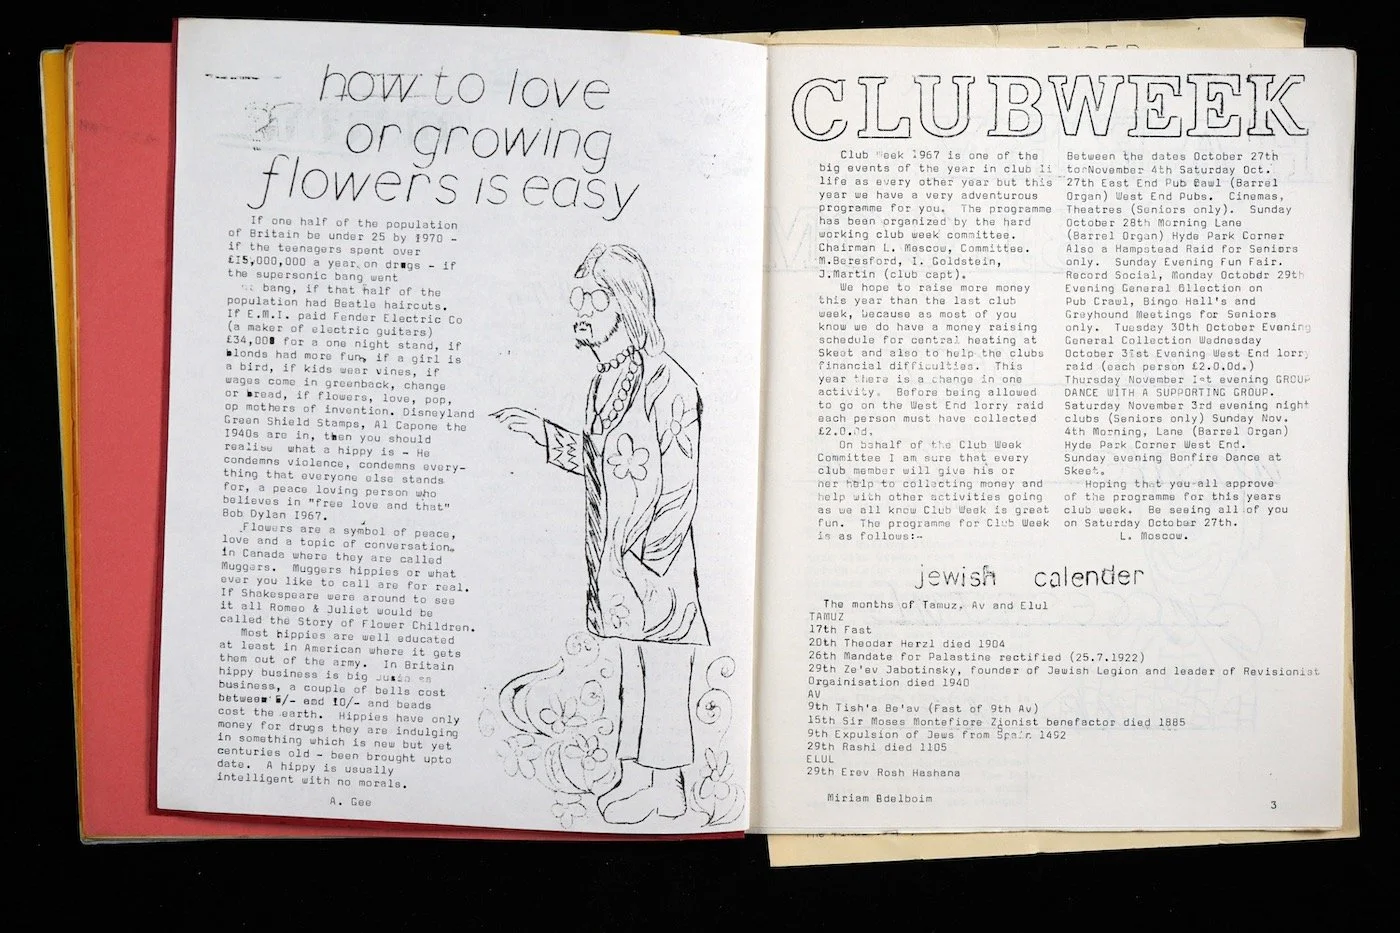 how to love
or growing
flowers is easy
If one half of the population
of Britain be under 25 by 1970 -
if the teenagers spent over
£15,000,000 a year on drugs - if
the supersonic bang went
bang, if that half of the
population had Beatle haircuts.
If E.M.I. paid Fender Electric Co
(a maker of electric guitars)
£34,000 for a one night stand, if
blonds had more fun, if a girl is
a bird, if kids wear vines, if
wages come in greenback, change
or bread, if flowers, love, pop,
op mothers of invention. Disneyland
Green Shield Stamps, Al Capone the
1940s are in, then you should
realise what a hippy is - He
condemns violence, condemns every-
thing that everyone else stands
for, a peace loving person who
believes in "free love and that"
Bob Dylan 1967.
Flowers are a symbol of peace,
love and a topic of conversation.
in Canada where they are called
Muggers. Muggers hippies or what
ever you like to call are for real.
If Shakespeare were around to see
it all Romeo & Juliet would be
called the Story of Flower Children.
Most hippies are well educated
at least in American where it gets
them out of the army. In Britain
hippy business is big
business, a couple of bells cost
between 5/- and 10/- and beads
cost the earth. Hippies have only
money for drugs they are indulging
in something which is new but yet
centuries old - been brought upto
date. A hippy is usually
intelligent with no morals.
A. Gee
CLUBWEEK
Club week 1967 is one of the
big events of the year in club li
life as every other year but this
year we have a very adventurous
programme for you. The programme
has been organized by the hard
working club week committee.
Chairman L. Moscow, Committee.
M.Beresford, I. Goldstein,
J.Martin (club capt).
We hope to raise more money
this year than the last club
week, because as most of you
know we do have a money raising
schedule for central heating at
Skeet and also to help the clubs
financial difficulties. This
year there is a change in one
activity. Before being allowed
to go on the West End lorry raid
each person must have collected
£2.0.0d.
On behalf of the Club Week
Committee I am sure that every
club member will give his or
her help to collecting money and
help with other activities going
as we all know Club Week is great
fun. The programme for Club Week
is as follows:-
Between the dates October 27th
to November 4th Saturday Oct.
27th East End Pub Cawl (Barrel
Organ) West End Pubs. Cinemas,
Theatres (Seniors only). Sunday
October 28th Morning Lane
(Barrel Organ) Hyde Park Corner
Also a Hampstead Raid for Seniors
only. Sunday Evening Fun Fair.
Record Social, Monday October 29th
Evening General Gllection on
Pub Crawl, Bingo Hall's and
Greyhound Meetings for Seniors
only. Tuesday 30th October Evening
General Collection Wednesday
October 31st Evening West End lorry
raid (each person £2.0.0d.)
Thursday November 1st evening GROUP
DANCE WITH A SUPPORTING GROUP.
Saturday November 3rd evening night
clubs (Seniors only) Sunday Nov.
4th Morning, Lane (Barrel Organ)
Hyde Park Corner West End.
Sunday evening Bonfire Dance at
Skeet.
Hoping that you all approve
of the programme for this years
club week. Be seeing all of you
on Saturday October 27th.
L. Moscow.
jewish calender
The months of Tamuz, Av and Elul
TAMUZ
17th Fast
20th Theodar Herzl died 1904
26th Mandate for Palastine rectified (25.7.1922)
29th Ze'ev Jabotinsky, founder of Jewish Legion and leader of Revisionist
Orgainisation died 1940
AV
9th Tish'a Be'av (Fast of 9th Av)
15th Sir Moses Montefiore Zionist benefactor died 1885
9th Expulsion of Jews from Spain 1492
29th Rashi died 1105
ELUL
29th Erev Rosh Hashana
Miriam Edelboim
3